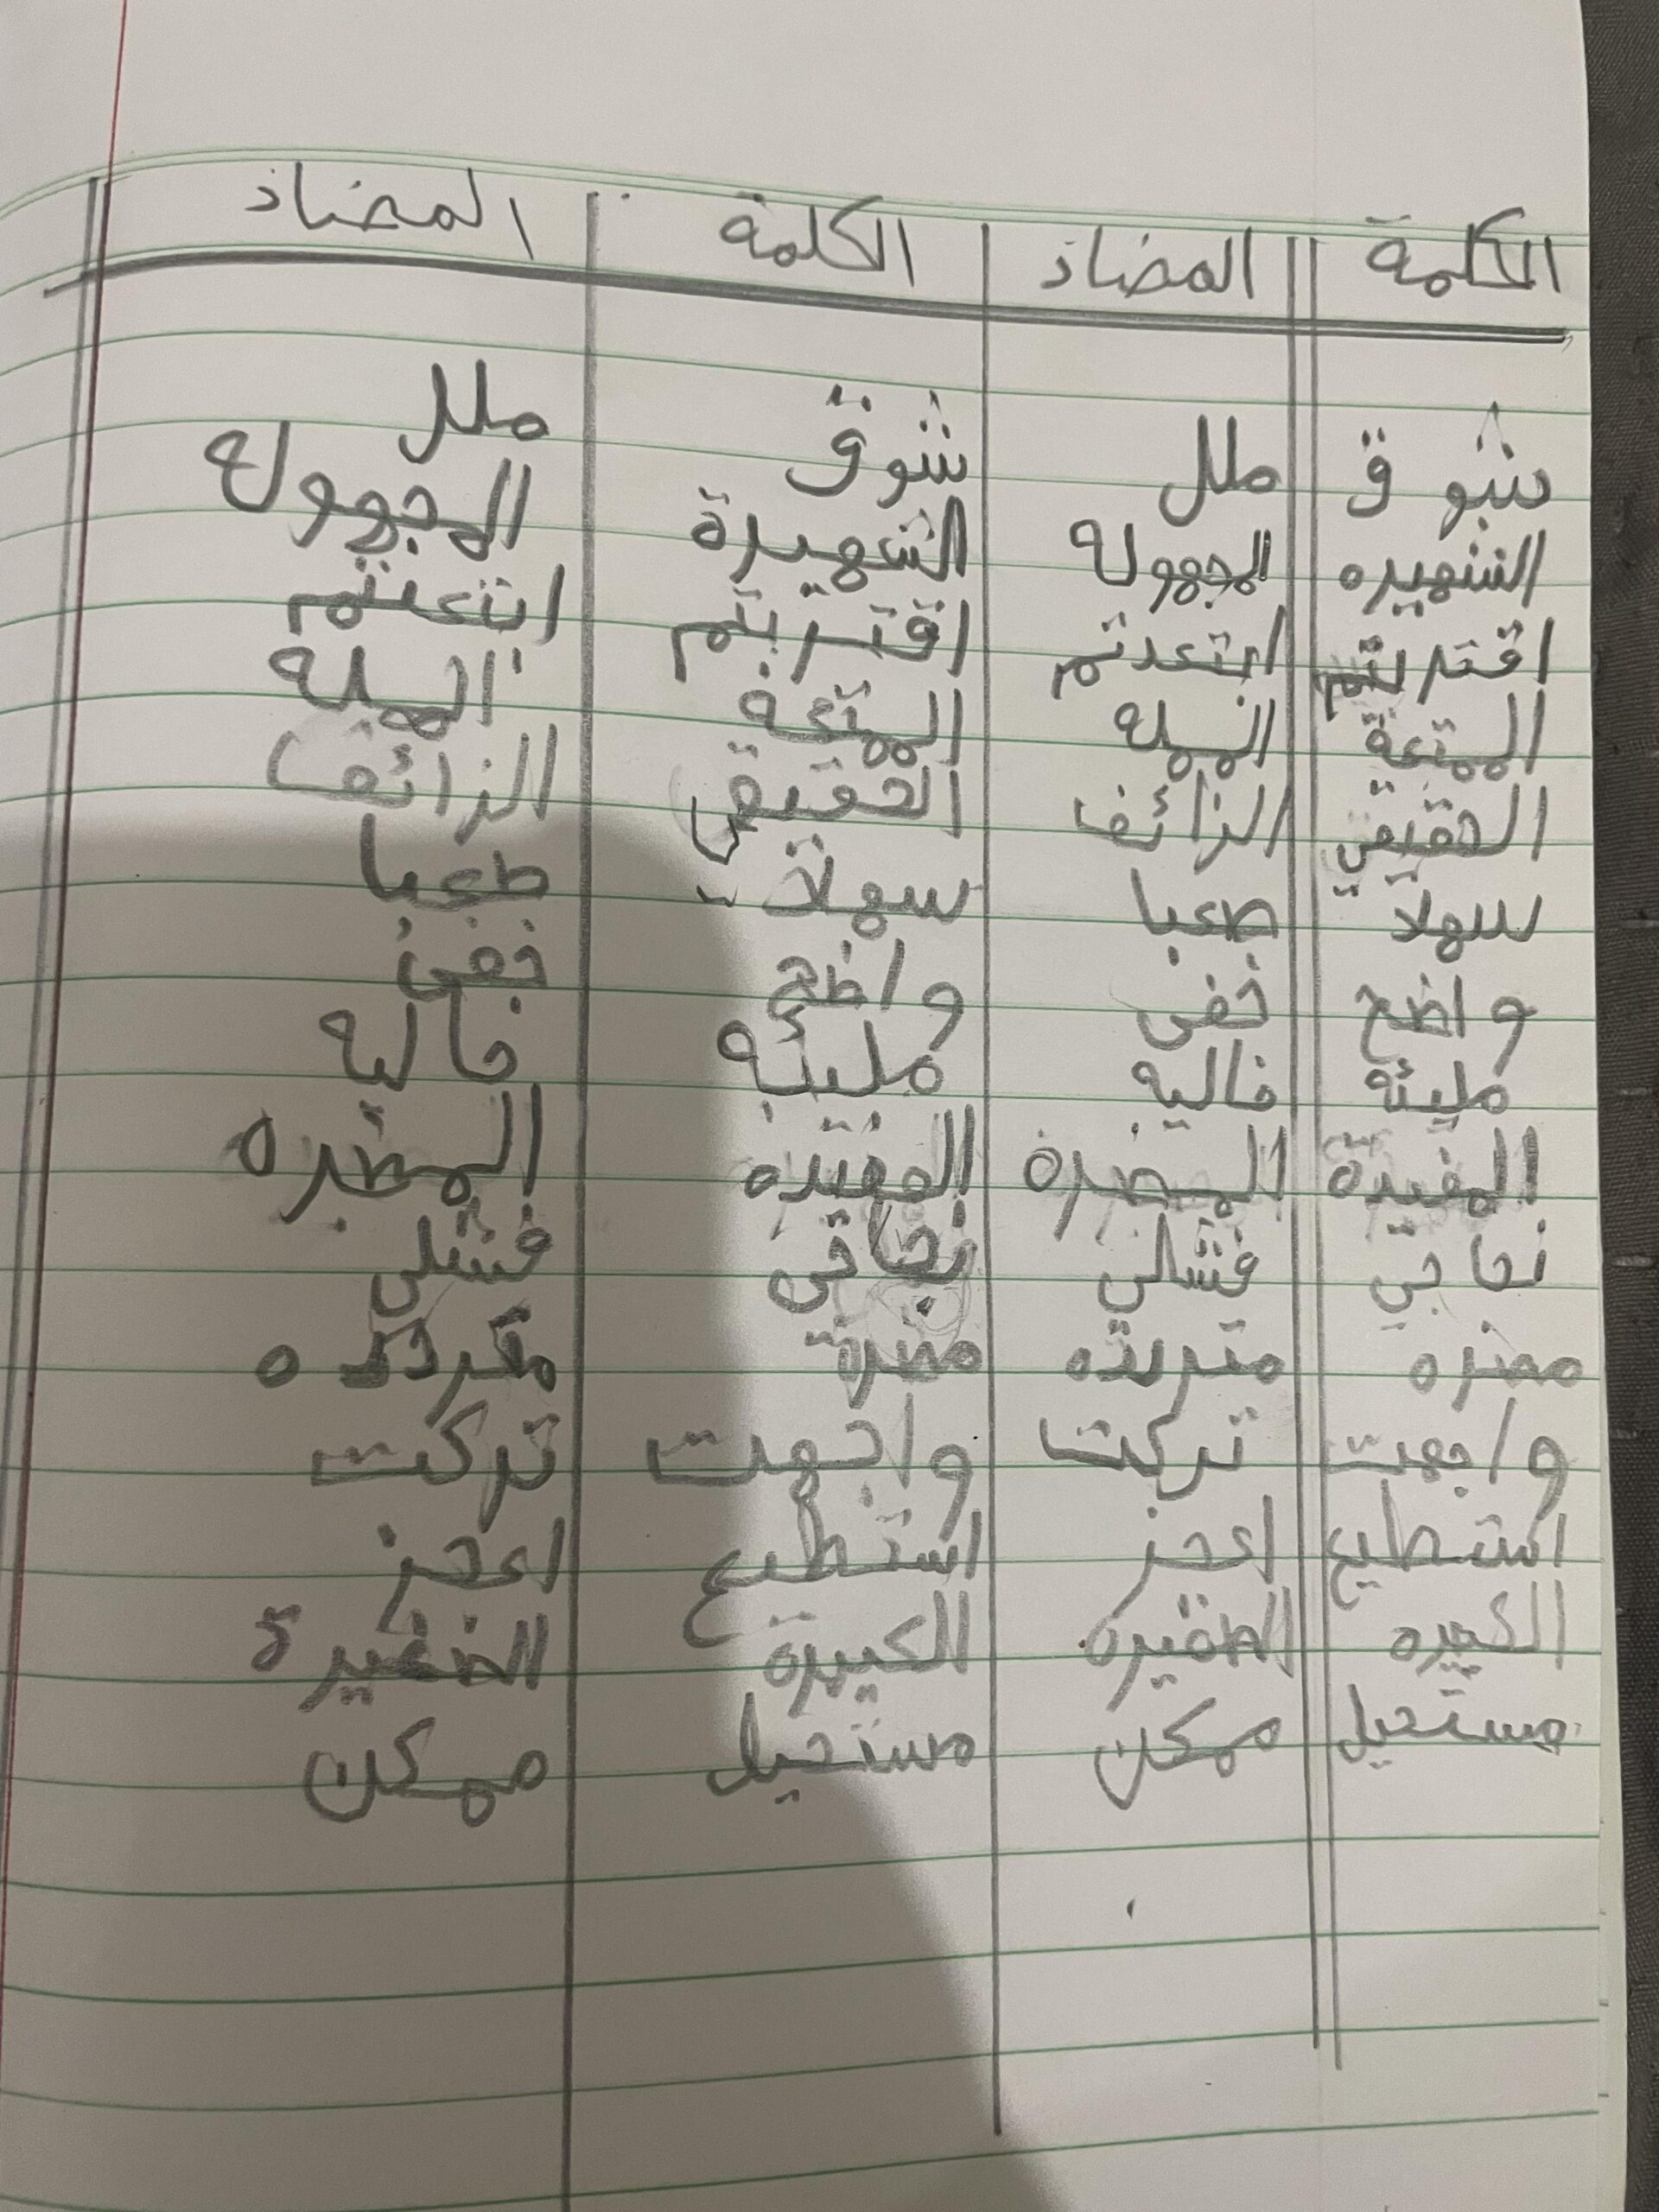 الكلمة المضاد الكلمة المضاد
شوق ملل شوق ملل
الشهيره المجهوله الشهيرة المجهوله
اقتربتم ابتعدتم اقتربتم ابتعتم
الممتعة المملة الممتعة المملة
الحقيقي الزائف الحقيقي الزائف
سهلا صعبا سهلا صعبا
واضح خفى واضح خفى
مليئة خاليه مليئه خاليه
المفيدة المضرة المفيده المضره
نجاحي فشلي نجاحي فشلى
مصره متردده مصرة متردده
واجهت تركت واجهت تركت
استطيع اعجز استطيع اعجز
الكبيره الصغيره الكبيرة الصغيرة
مستحيل ممكن مستحيل ممكن